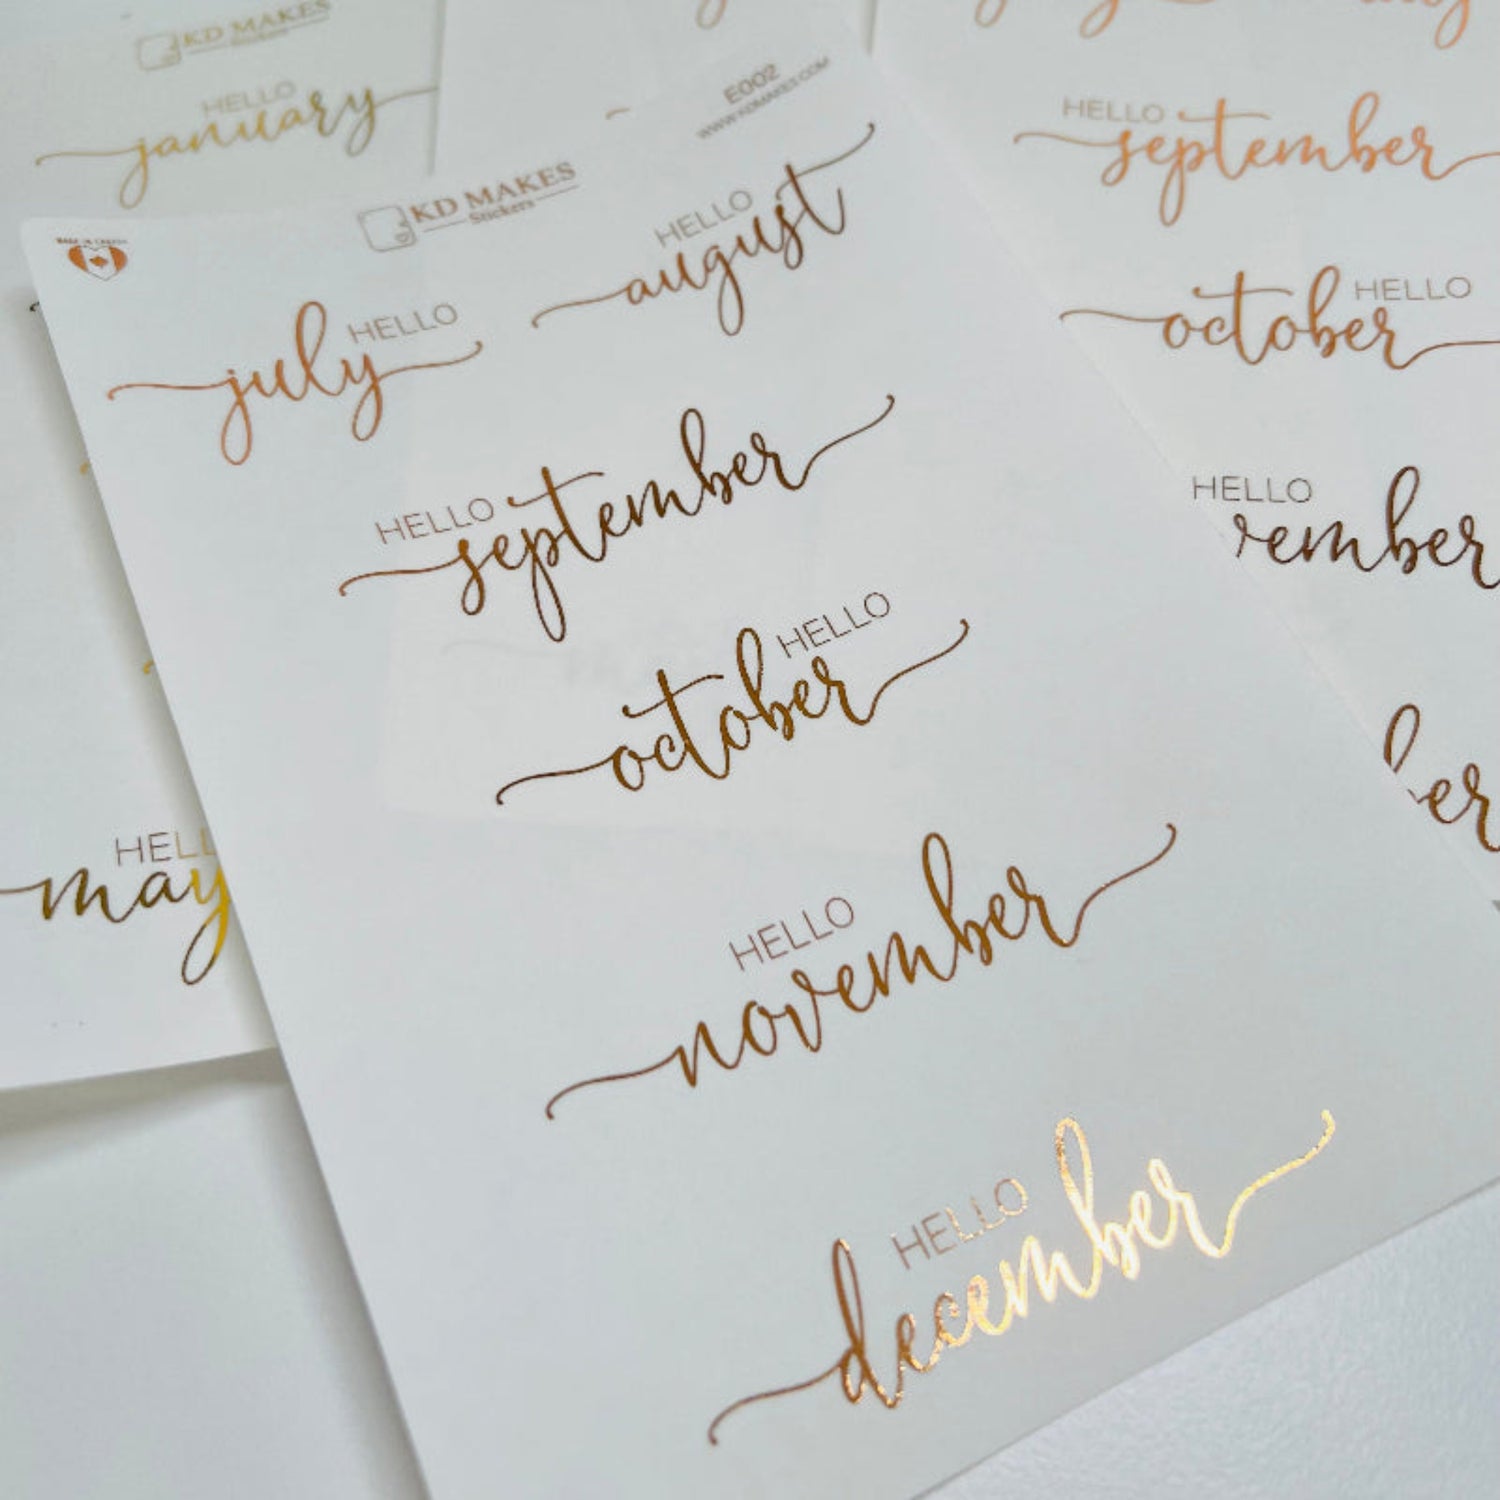 KD MAKES
HELLO
january
HELL
may
MADE IN CANADA
KD MAKES
Stickers
E002
WWW.KDMAKES.COM
HELLO
july
HELLO
august
HELLO
september
HELLO
october
HELLO
november
HELLO
december
HELLO
september
HELLO
october
HELLO
ember
ber